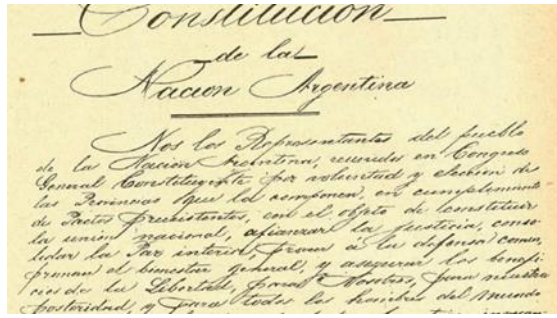 Constitución
de la
Nacion Argentina
Nos los Representantes del pueblo
de la Nacion Argentina, reunidos en Congreso
General Constituyente por voluntad y eleccion de
las Provincias que la componen, en cumplimiento
de Pactos preexistentes, con el objeto de constituir
la union nacional, afianzar la justicia, conso
lidar la Paz interior, proveer á la defensa comun,
promover el bienestar general, y asegurar los benefi
cios de la Libertad, para Nosotros, para nuestra
posteridad, y para todos los hombres del mundo